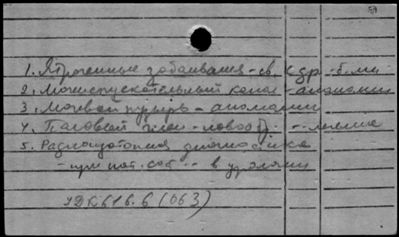 1. Ятрогенные заболевания - св. с др. б-ми
2. Мочеиспускательный канал - аномалии
3. Мочевой пузырь - аномалии
4. Половой член - новообр. -- лечение
5. Радиоизотопная диагностика
- при пат. сост. -- в урологии
УДК 616.6 (063)